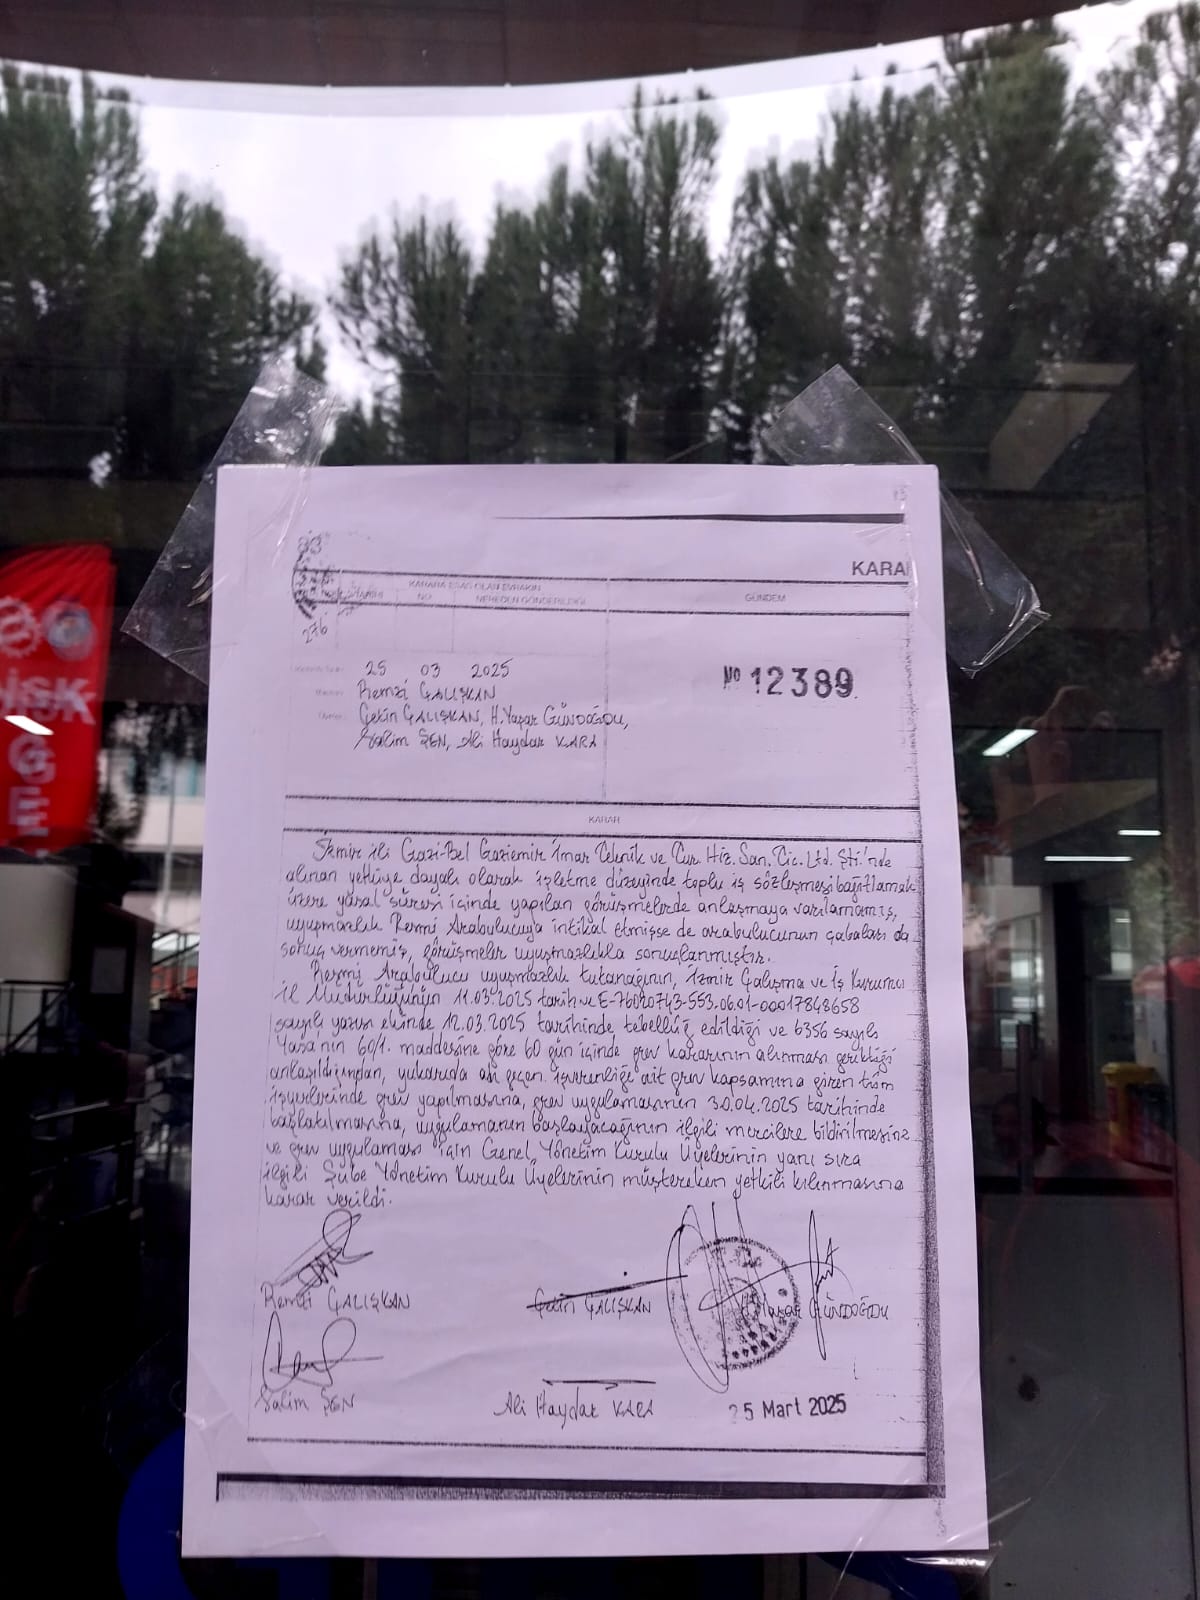 KARA
KARARA ESAS OLAN EVRAKIN
NO
NEREDEN GÖNDERİLDİĞİ
GÜNDEM
276
25 03 2025
Nº 12389
Remzi ÇALIŞKAN
Çetin ÇALIŞKAN, H. Yaşar GÜNDOĞDU,
Salim ŞEN, Ali Haydar KARA
KARAR
İzmir ili Gazi-Bel Gaziemir İmar Teknik ve Tur. Hiz. San. Tic. Ltd. Şti.'nde
alınan yetkiye dayalı olarak işletme düzeyinde toplu iş sözleşmesi bağıtlamak
üzere yasal süresi içinde yapılan görüşmelerde anlaşmaya varılamamış,
uyuşmazlık Resmi Arabulucuya intikal etmişse de arabulucunun çabaları da
sonuç vermemiş, görüşmeler uyuşmazlıkla sonuçlanmıştır.
Resmi Arabulucu uyuşmazlık tutanağının, İzmir Çalışma ve İş Kurumu
İl Müdürlüğünün 11.03.2025 tarih ve E-76090743-553.06.01-00017848658
sayılı yazısı ekinde 12.03.2025 tarihinde tebellüğ edildiği ve 6356 sayılı
Yasa'nın 60/1. maddesine göre 60 gün içinde grev kararının alınması gerektiği
anlaşıldığından, yukarıda adı geçen işverenliğe ait grev kapsamına giren tüm
işyerlerinde grev yapılmasına, grev uygulamasının 30.04.2025 tarihinde
başlatılmasına, uygulamanın başlayacağının ilgili mercilere bildirilmesine
ve grev uygulaması için Genel Yönetim Kurulu Üyelerinin yanı sıra
ilgili Şube Yönetim Kurulu Üyelerinin müştereken yetkili kılınmasına
karar verildi.
Remzi ÇALIŞKAN
Çetin ÇALIŞKAN
Yaşar GÜNDOĞDU
Salim ŞEN
Ali Haydar KARA
25 Mart 2025
DİSK
GE